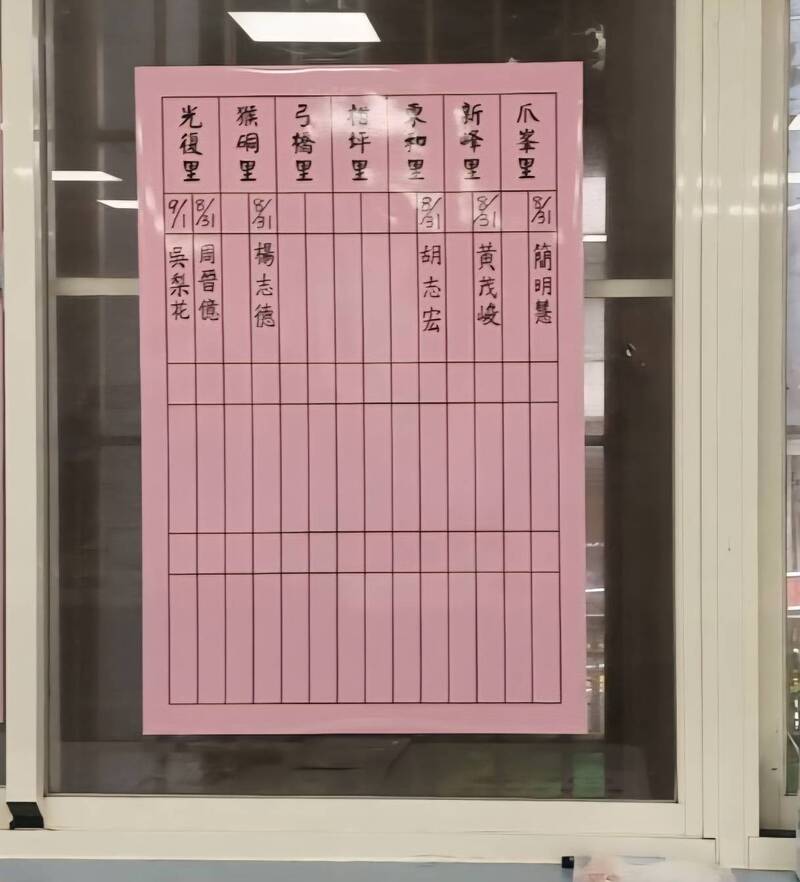 爪峯里
8/31
簡明慧
新峰里
8/31
黃茂峻
東和里
8/31
胡志宏
柑坪里
弓橋里
猴硐里
8/31
楊志德
光復里
8/31
周晉億
9/1
吳梨花